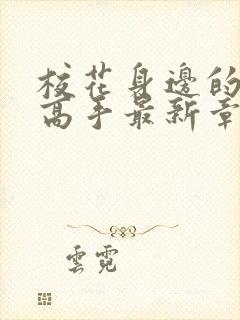 校花身邊的
高手最新章
雲霓